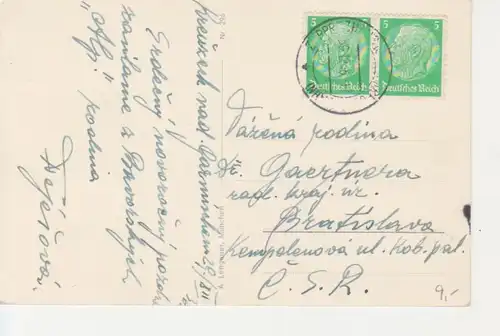 Kreuzeck nad Garmischom 29/XII
Srdečný novoročný pozdrav
zasielame z Bavorských
"Alp" rodina
Dejčiová.
5
5
Deutsches Reich
Deutsches Reich
Vážená rodina
Dr. Gaertnera
rada kraj. úr.
Bratislava
Kempelenova ul. Kob. pal.
Č. S. R.
9,-